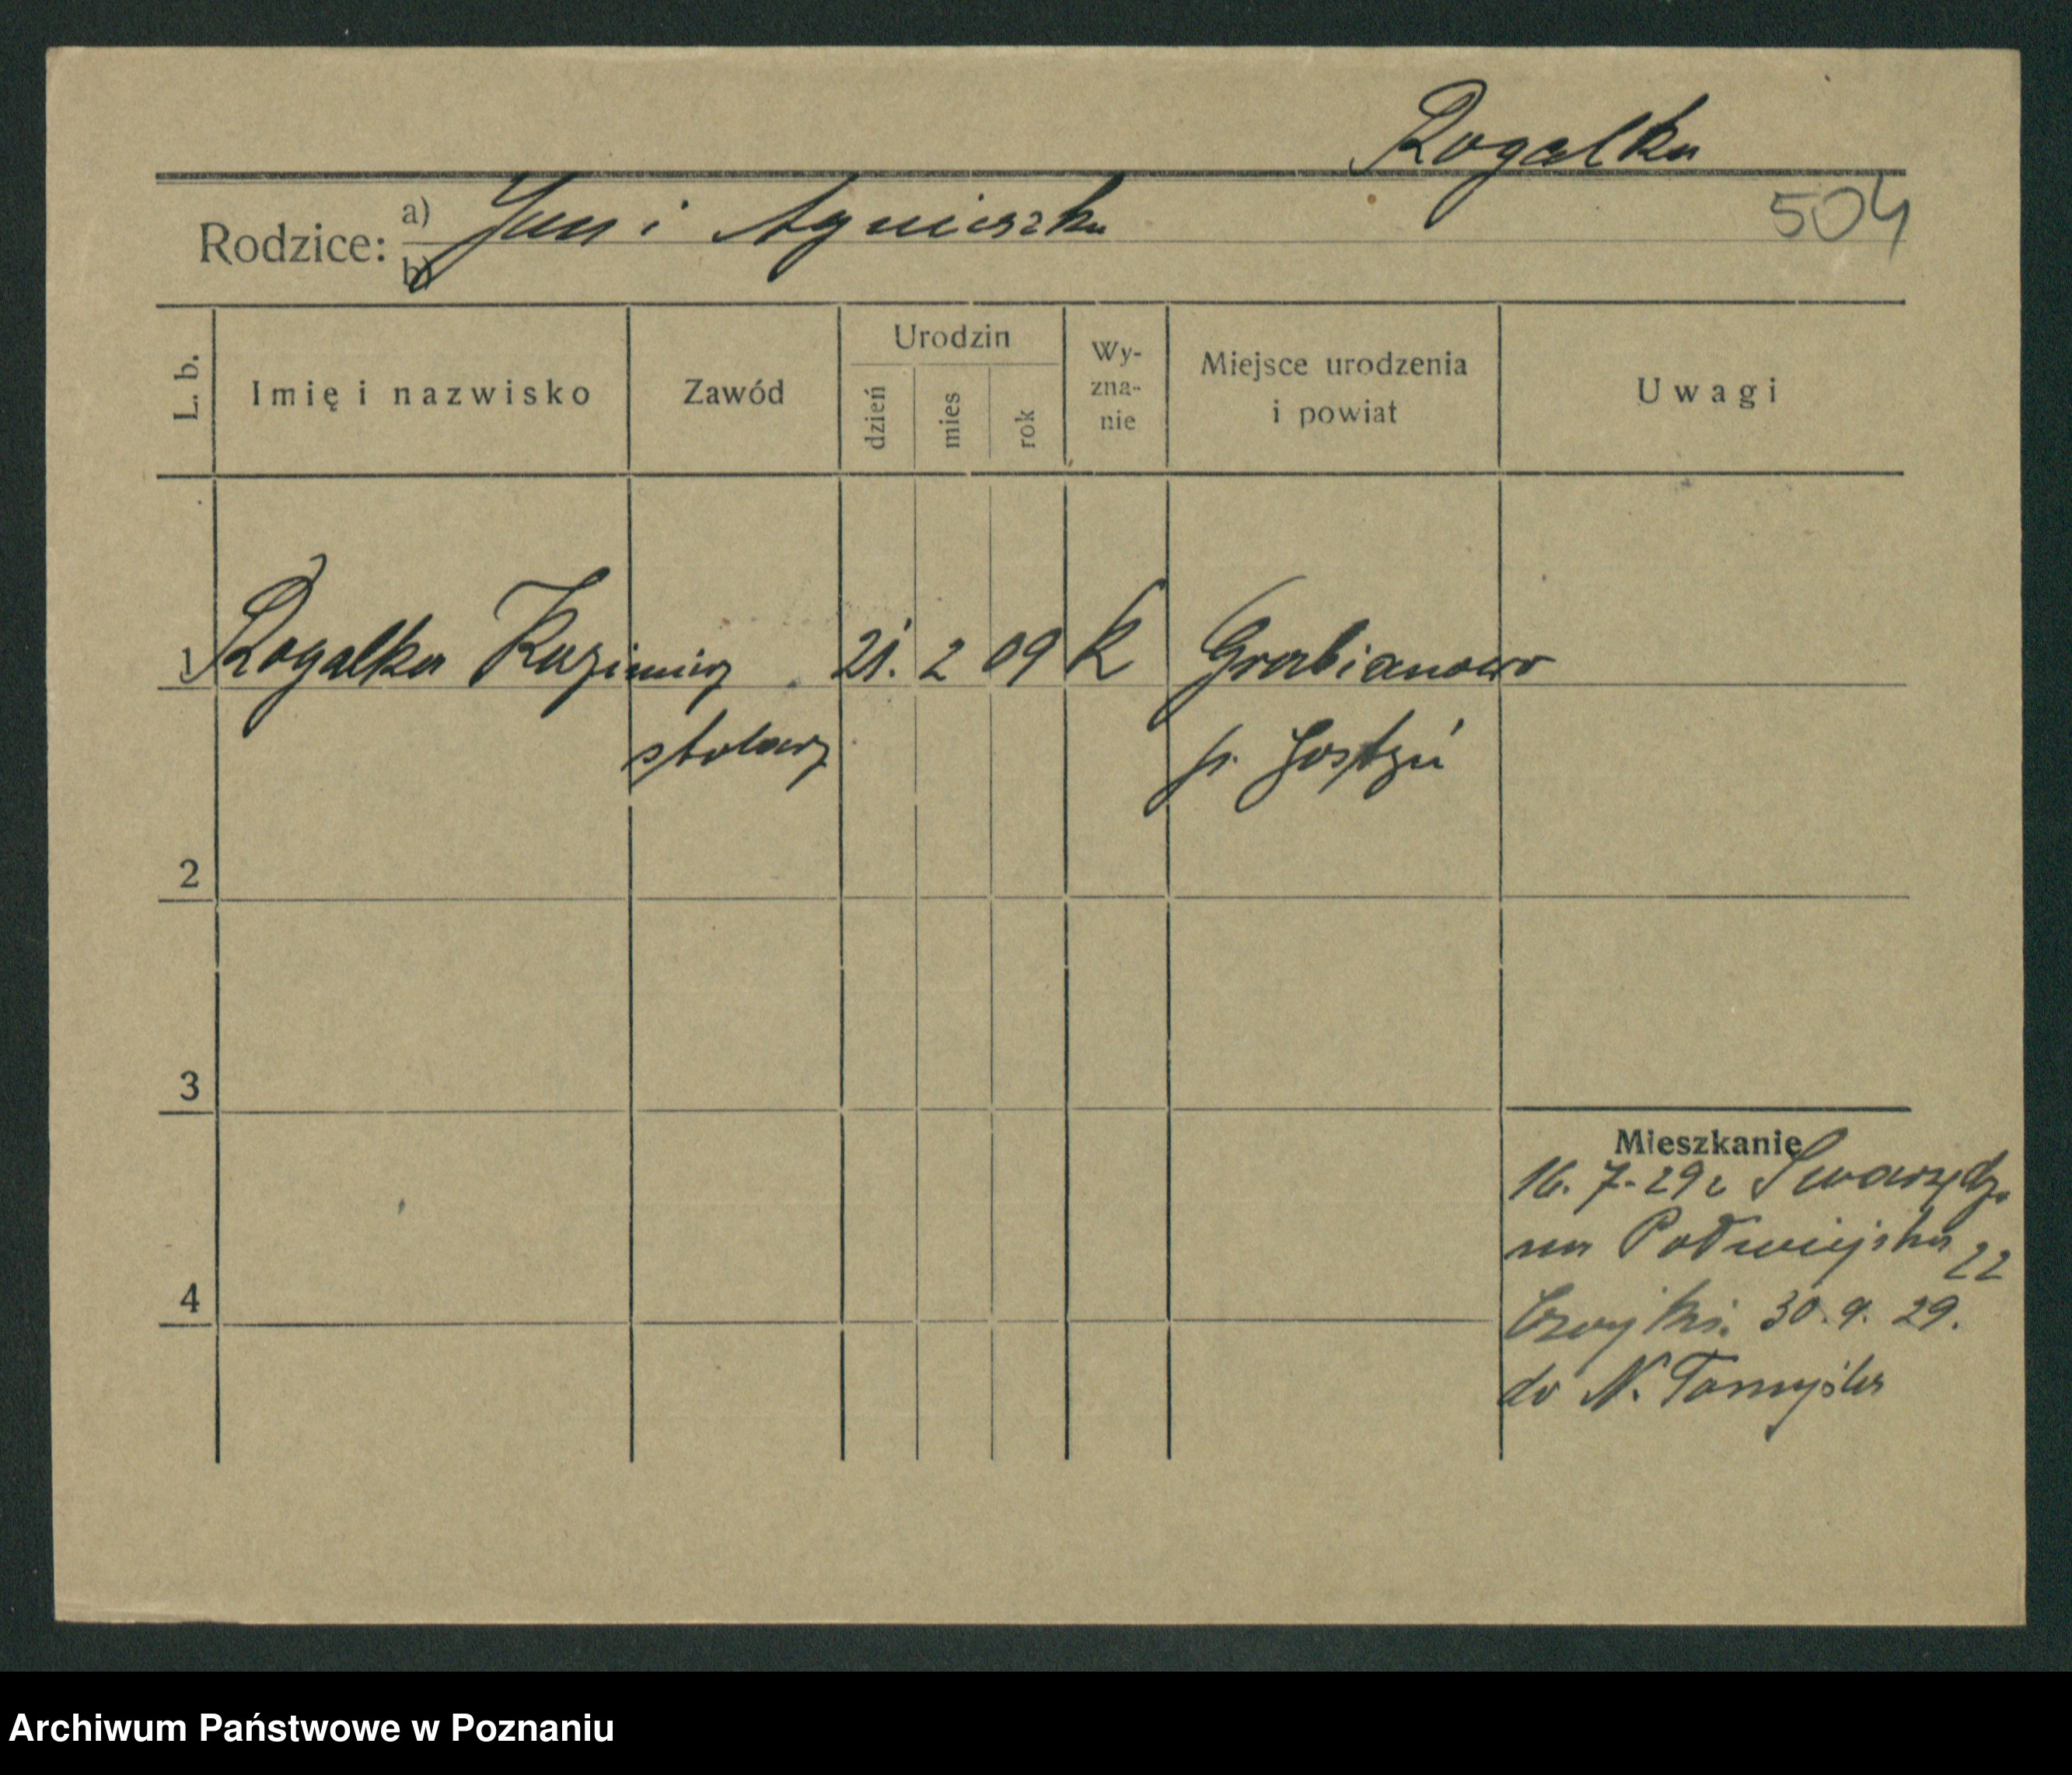 Rogalka
504
Rodzice: a) Jan i Agnieszka
b)
L. b.
Imię i nazwisko
Zawód
Urodzin
dzień
mies
rok
Wy-
zna-
nie
Miejsce urodzenia
i powiat
Uwagi
1 Rogalka Kazimierz 21. 2 09 K Grabianowo
stolarz p. Gostyń
2
3
4
Mieszkanie
16. 7. 29 z Swarzędz.
na Podwiejska 22
30. 9. 29.
do N. Tomyśla
Archiwum Państwowe w Poznaniu